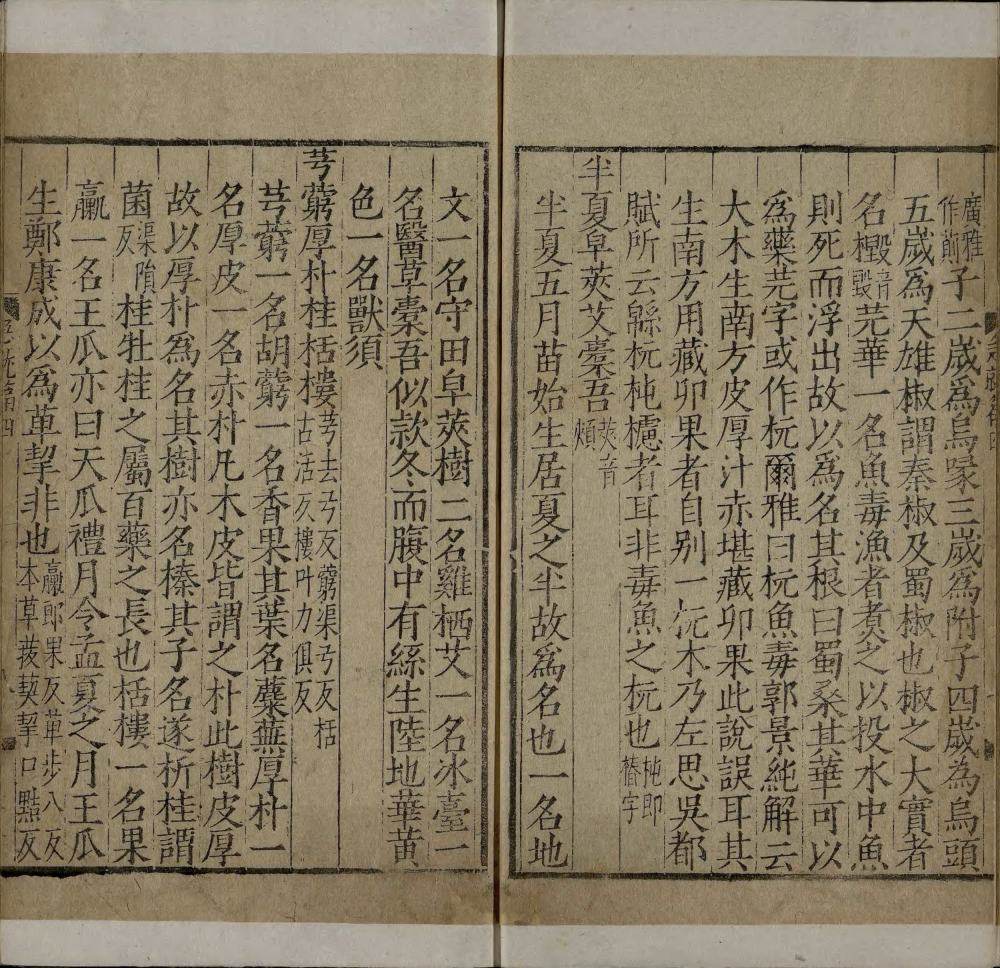 廣雅作萴子二歲爲烏喙三歲爲附子四歲為烏頭
五歲爲天雄椒謂秦椒及蜀椒也椒之大實者
名檓音毀芫華一名魚毒漁者煑之以投水中魚
則死而浮出故以爲名其根曰蜀桑其華可以
爲藥芫字或作杬爾雅曰杬魚毒郭景純解云
大木生南方皮厚汁赤堪藏卵果此說誤耳其
生南方用藏卵果者自别一杬木乃左思吳都
賦所云緜杬杶櫨者耳非毒魚之杬也杶即椿字
半夏皁莢艾橐吾莢音頰
半夏五月苗始生居夏之半故爲名也一名地
文一名守田皁莢樹二名雞栖艾一名冰臺一
名醫草橐吾似款冬而腹中有絲生陸地華黃
色一名獸須
芎藭厚朴桂栝樓芎去弓反藭渠弓反栝古活反樓叶力俱反
芎藭一名胡藭一名香果其葉名蘪蕪厚朴一
名厚皮一名赤朴凡木皮皆謂之朴此樹皮厚
故以厚朴爲名其樹亦名榛其子名遂析桂謂
菌渠隕反桂牡桂之屬百藥之長也栝樓一名果
臝一名王瓜亦曰天瓜禮月令孟夏之月王瓜
生鄭康成以爲萆挈非也臝郎果反萆步八反本草菝葜挈口黠反